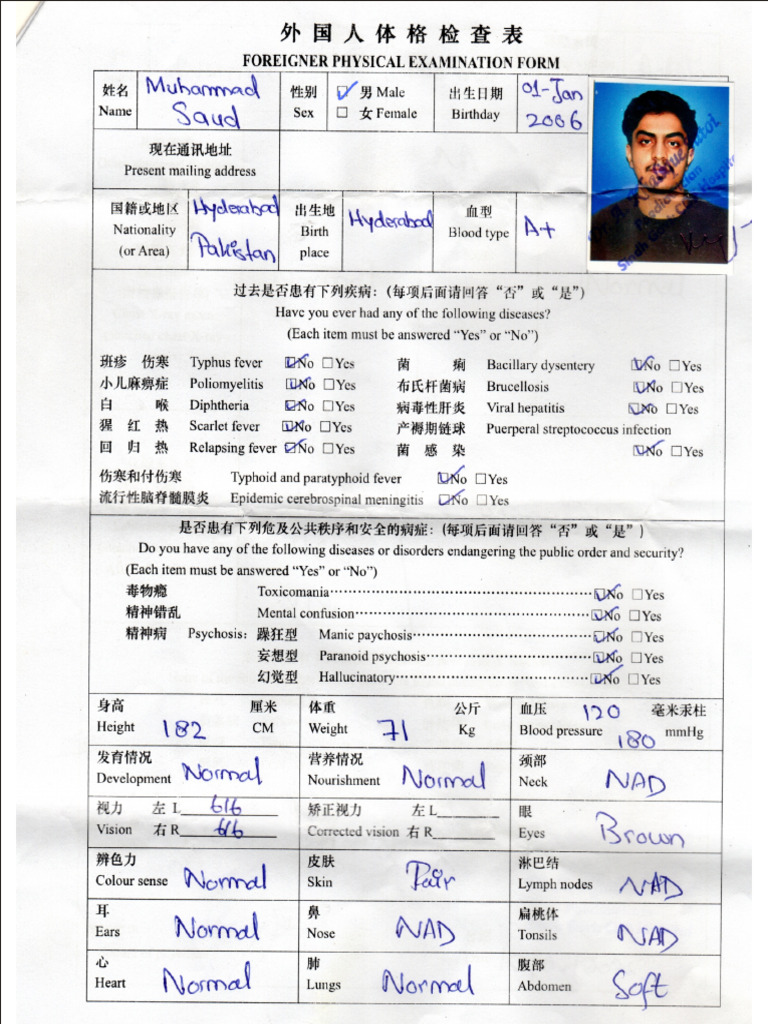 外国人体格检查表
FOREIGNER PHYSICAL EXAMINATION FORM
姓名 Muhammad 性别 ☑ 男 Male 出生日期 01-Jan
Name Saud Sex ☐ 女 Female Birthday 2006
现在通讯地址
Present mailing address
国籍或地区 Hyderabad 出生地 Hyderabad 血型 A+
Nationality Pakistan Birth Blood type
(or Area) place
过去是否患有下列疾病：(每项后面请回答“否”或“是”)
Have you ever had any of the following diseases?
(Each item must be answered “Yes” or “No”)
班疹 伤寒 Typhus fever ☑No ☐Yes 菌 痢 Bacillary dysentery ☑No ☐Yes
小儿麻痹症 Poliomyelitis ☑No ☐Yes 布氏杆菌病 Brucellosis ☑No ☐Yes
白 喉 Diphtheria ☑No ☐Yes 病毒性肝炎 Viral hepatitis ☑No ☐Yes
猩 红 热 Scarlet fever ☑No ☐Yes 产褥期链球 Puerperal streptococcus infection
回 归 热 Relapsing fever ☑No ☐Yes 菌 感 染 ☑No ☐Yes
伤寒和付伤寒 Typhoid and paratyphoid fever ☑No ☐Yes
流行性脑脊髓膜炎 Epidemic cerebrospinal meningitis ☑No ☐Yes
是否患有下列危及公共秩序和安全的病症：(每项后面请回答“否”或“是”)
Do you have any of the following diseases or disorders endangering the public order and security?
(Each item must be answered “Yes” or “No”)
毒物瘾 Toxicomania ☑No ☐Yes
精神错乱 Mental confusion ☑No ☐Yes
精神病 Psychosis: 躁狂型 Manic paychosis ☑No ☐Yes
妄想型 Paranoid psychosis ☑No ☐Yes
幻觉型 Hallucinatory ☑No ☐Yes
身高 182 厘米 体重 71 公斤 血压 120 毫米汞柱
Height CM Weight Kg Blood pressure 180 mmHg
发育情况 Normal 营养情况 Normal 颈部 NAD
Development Nourishment Neck
视力 左 L 6/6 矫正视力 左 L 眼 Brown
Vision 右 R 6/6 Corrected vision 右 R Eyes
辨色力 Normal 皮肤 Fair 淋巴结 NAD
Colour sense Skin Lymph nodes
耳 Normal 鼻 NAD 扁桃体 NAD
Ears Nose Tonsils
心 Normal 肺 Normal 腹部 Soft
Heart Lungs Abdomen